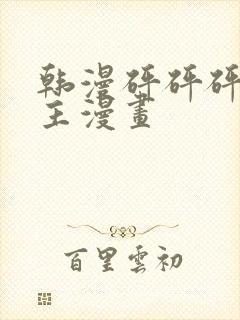 韩漫砰砰砰
主漫畫
百里雲初